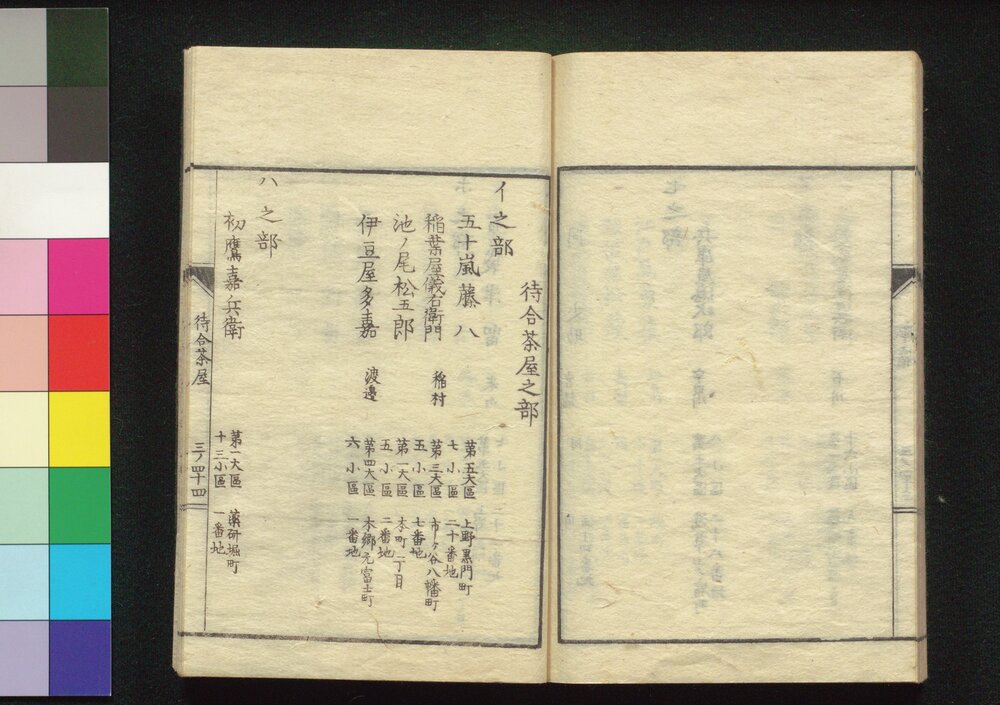 待合茶屋之部
イ之部
五十嵐藤八
第五大區
七小區
上野黒門町
二十番地
稲葉屋儀右衛門
稲村
第三大區
五小區
市ヶ谷八幡町
七番地
池ノ尾松五郎
第一大區
五小區
本町一丁目
二番地
伊豆屋多嘉
渡邉
第四大區
六小區
本郷元富士町
一番地
ハ之部
初鷹嘉兵衛
第一大區
十三小區
薬研堀町
一番地
待合茶屋
三ノ四十四